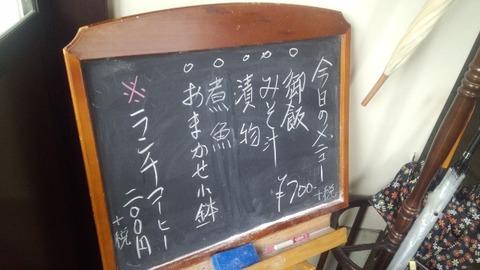 今日のメニュー
○御飯
○みそ汁
○漬物
○煮魚
○おまかせ小鉢
¥700-
+税
※ランチコーヒー
二〇〇円
+税